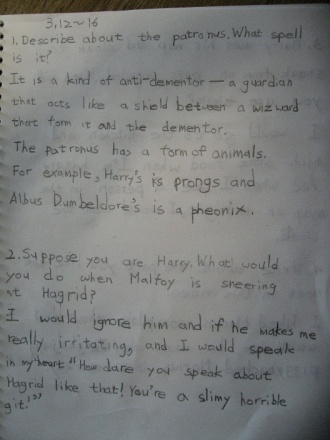 3,12~16
1. Describe about the patronus. What spell
is it?
It is a kind of anti-dementor — a guardian
that acts like a shield between a wizward
that form it and the dementor.
The patronus has a form of animals.
For example, Harry's is prongs and
Albus Dumbeldore's is a pheonix.
2. Suppose you are Harry. What would
you do when Malfoy is sneering
at Hagrid?
I would ignore him and if he makes me
really irritating, and I would speak
in my heart "How dare you speak about
Hagrid like that! You're a slimy horrible
git!"